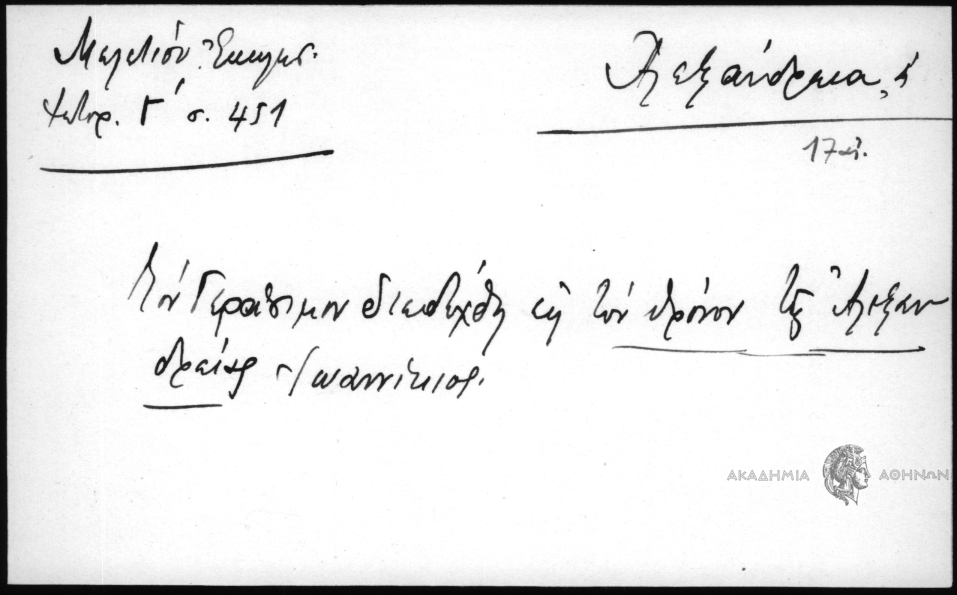 Μελετίου Ἐκκλησ.
ἱστορ. Γ' σ. 451
Ἀλεξάνδρεια, ἡ
17 αἰ.
Τὸν Γεράσιμον διεδέχθη εἰς τὸν θρόνον τῆς Ἀλεξαν
δρείας Ἰωαννίκιος.
ΑΚΑΔΗΜΙΑ ΑΘΗΝΩΝ